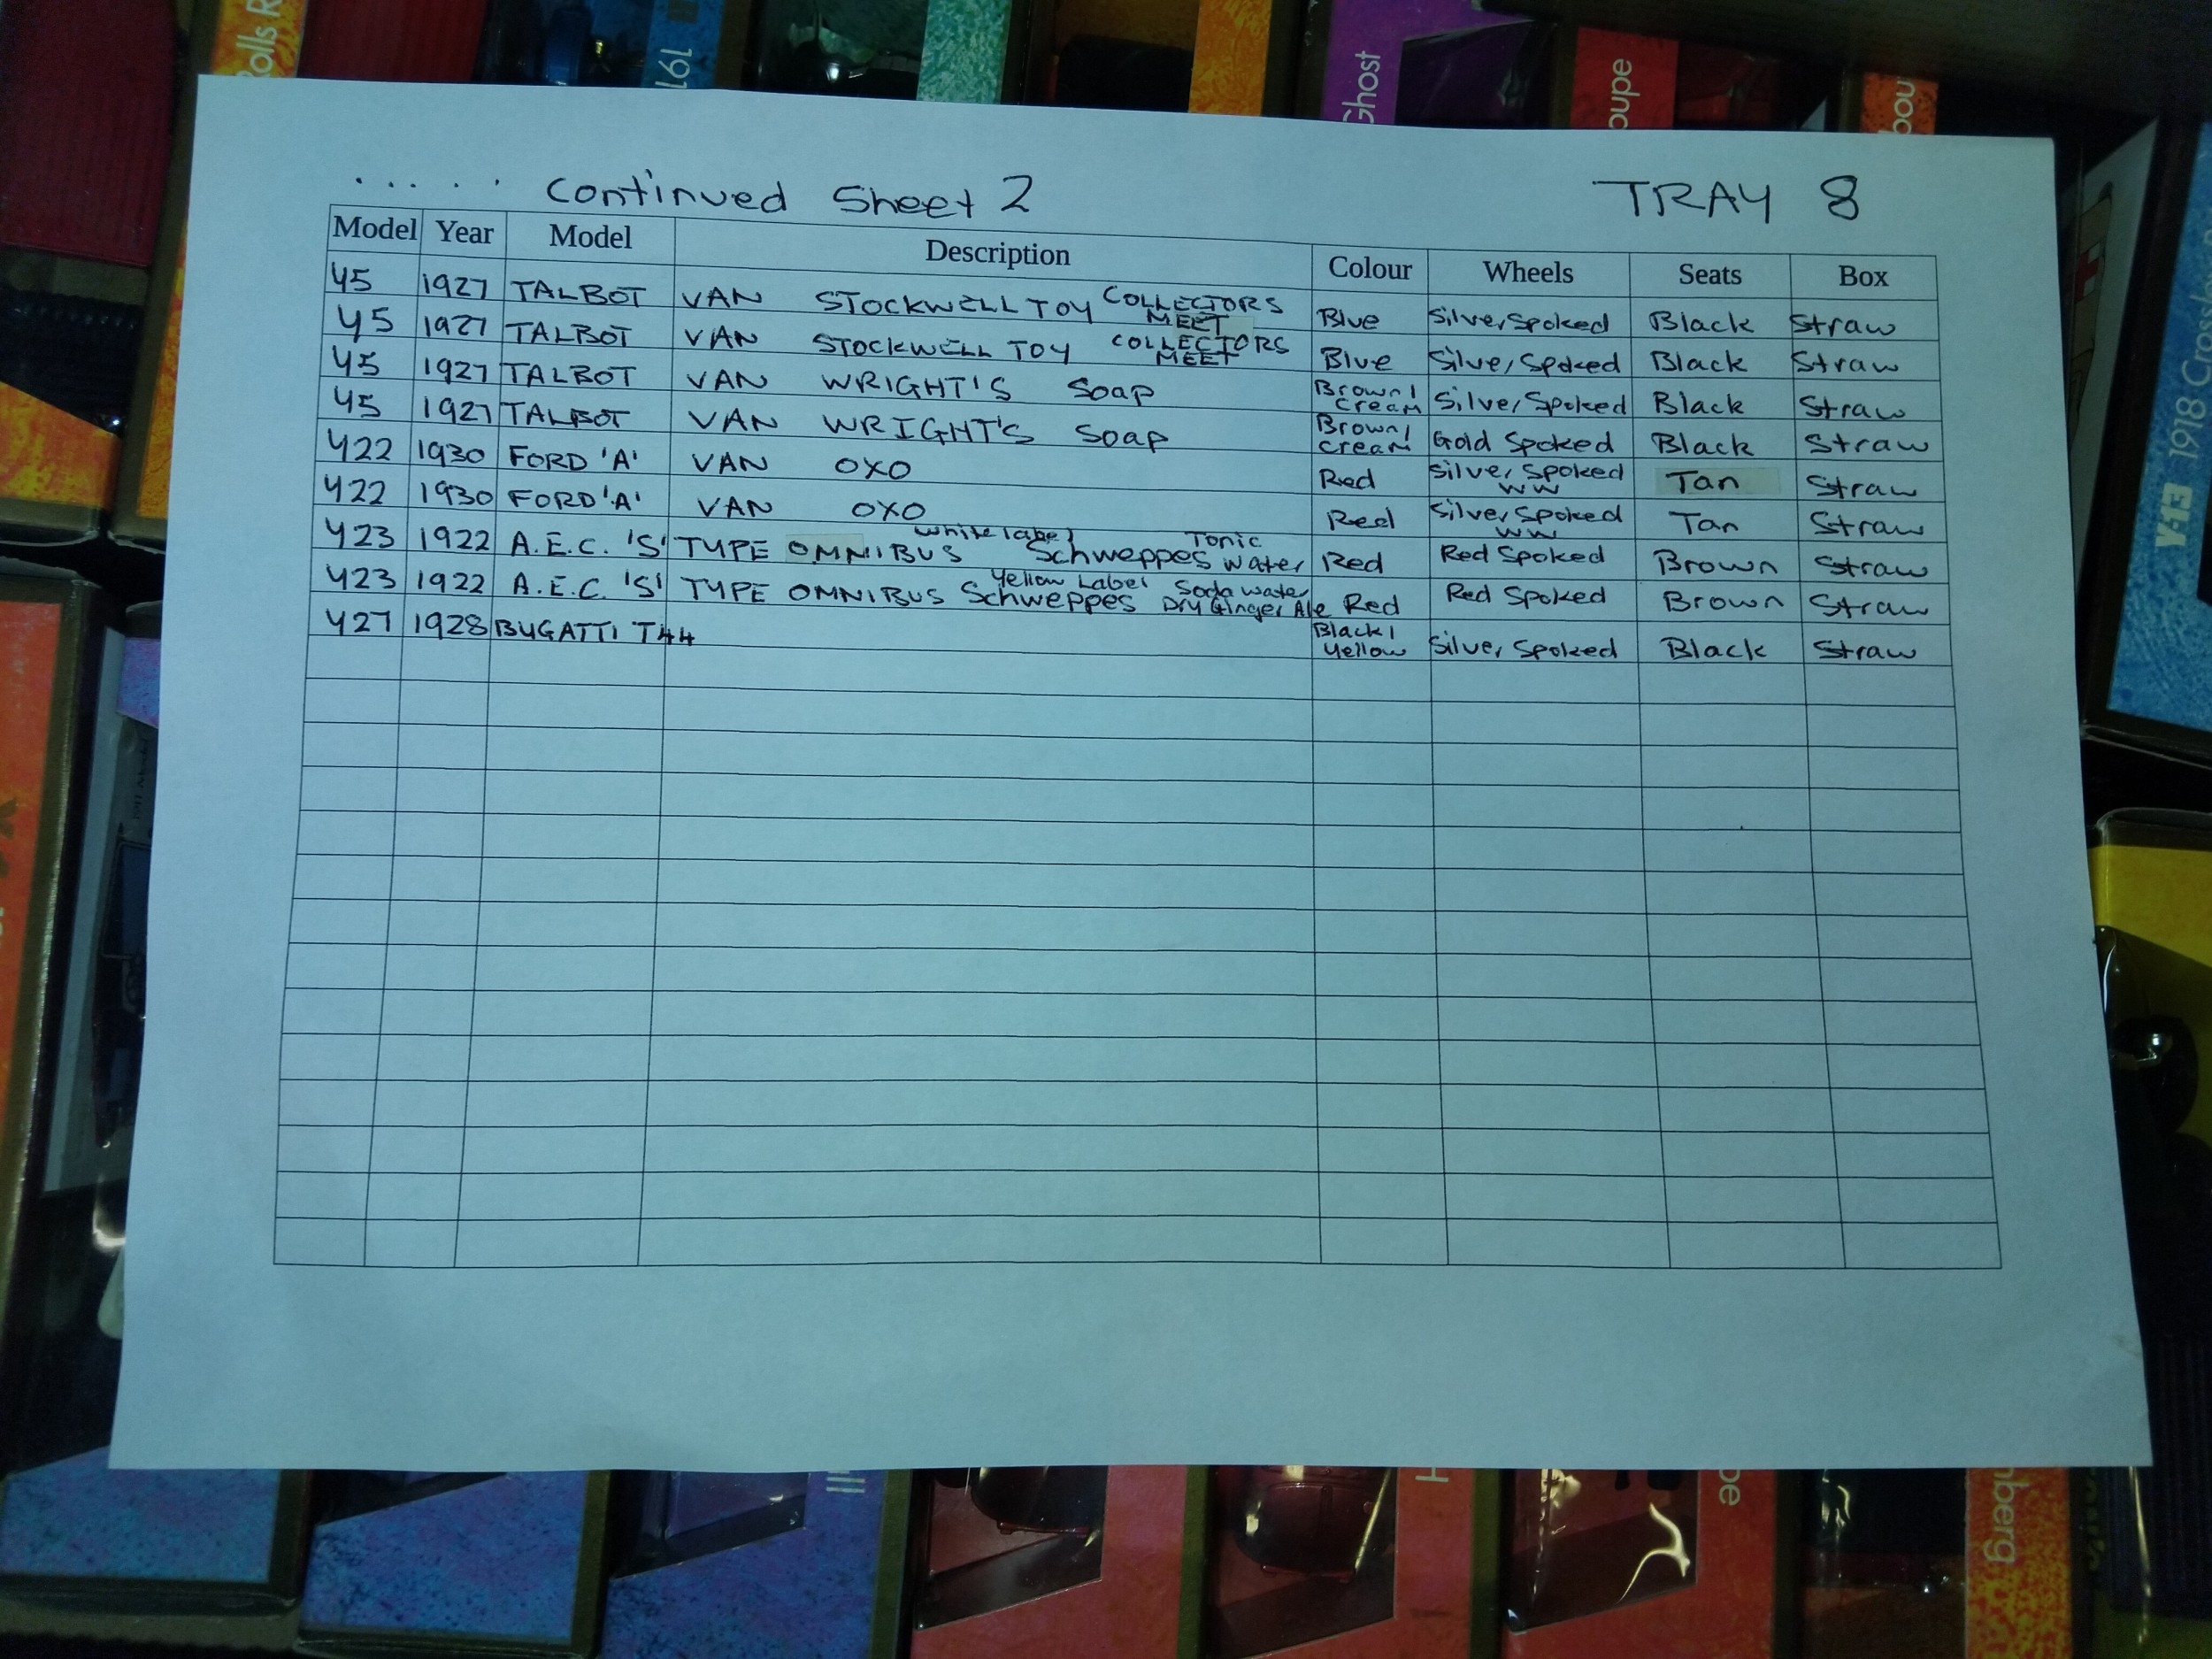 ..... Continued Sheet 2 TRAY 8
Model Year Model Description Colour Wheels Seats Box
Y5 1927 TALBOT VAN STOCKWELL TOY COLLECTORS MEET Blue Silver Spoked Black Straw
Y5 1927 TALBOT VAN STOCKWELL TOY COLLECTORS MEET Blue Silver Spoked Black Straw
Y5 1927 TALBOT VAN WRIGHT'S Soap Brown/Cream Silver Spoked Black Straw
Y5 1927 TALBOT VAN WRIGHT'S Soap Brown/Cream Gold Spoked Black Straw
Y22 1930 FORD 'A' VAN OXO Red Silver Spoked WW Tan Straw
Y22 1930 FORD 'A' VAN OXO Red Silver Spoked WW Tan Straw
Y23 1922 A.E.C. 'S' TYPE OMNIBUS White label Schweppes Tonic Water Red Red Spoked Brown Straw
Y23 1922 A.E.C. 'S' TYPE OMNIBUS Yellow Label Schweppes Soda water Dry Ginger Ale Red Red Spoked Brown Straw
Y27 1928 BUGATTI T44 Black/Yellow Silver Spoked Black Straw
olls R
191
Ghost
oupe
bou
Y-13 1918 Cross
ill
H
pe
nberg